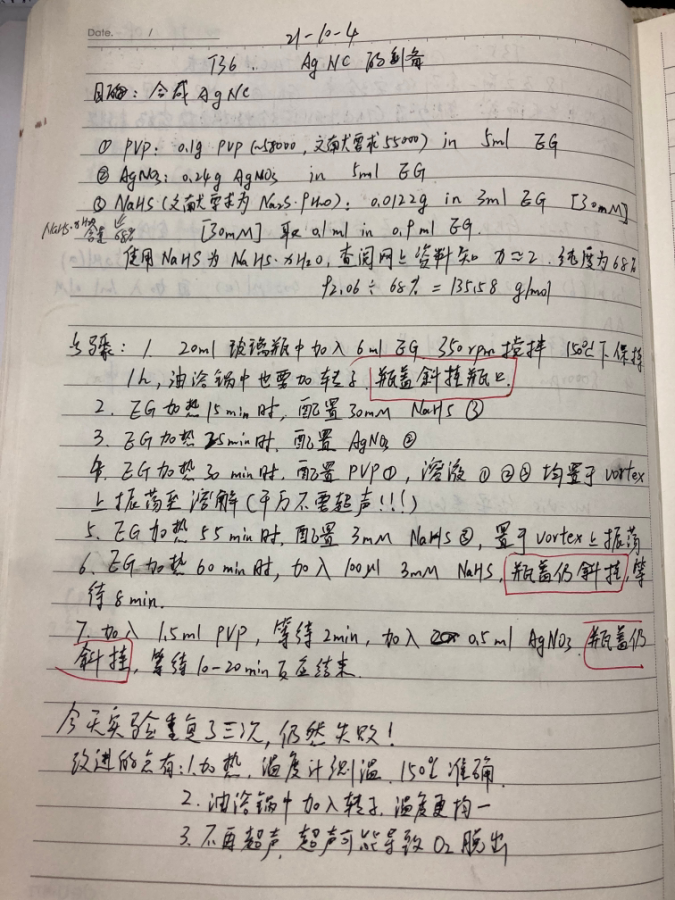 Date. /
21-10-4
T36. AgNC的制备
目的: 合成AgNC
① PVP: 0.1g PVP (~58000, 文献要求55000) in 5ml EG
② AgNO3: 0.24g AgNO3 in 5ml EG
③ NaHS (文献要求为Na2S·9H2O): 0.0122g in 3ml EG [30mM]
NaHS·xH2O
含量68%
[30mM] 取0.1ml in 0.9ml EG.
使用NaHS为NaHS·xH2O, 查阅网上资料知 x≈2. 纯度为68%
92.06÷68% = 135.58 g/mol
步骤: 1. 20ml玻璃瓶中加入6ml EG 350rpm搅拌 150℃下保持
1h, 油浴锅中也要加转子, 瓶盖斜挂瓶口.
2. EG加热15min时, 配置30mM NaHS ③
3. EG加热25min时. 配置AgNO3 ②
4. EG加热30min时. 配置PVP①, 溶液①②③均置于vortex
上振荡至溶解(千万不要超声!!!)
5. EG加热55min时. 配置3mM NaHS③, 置于vortex上振荡
6. EG加热60min时, 加入100μl 3mM NaHS, 瓶盖仍斜挂, 等
待8min.
7. 加入1.5ml PVP, 等待2min, 加入 0.5ml AgNO3. 瓶盖仍
斜挂, 等待10-20min反应结束.
今天实验重复了三次, 仍然失败!
改进的点有: 1.加热. 温度计测温. 150℃准确
2. 油浴锅中加入转子, 温度更均一
3. 不再超声. 超声可能导致O2脱出